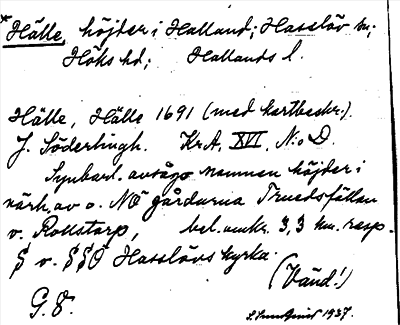 *Hälle, höjder i Halland; Hasslöv sn;
Höks hd; Hallands l.
Hälle, Hälle 1691 (med kartbeskr.).
J. Söderlingh. Kr.A. XVI, N:o D.
Synbarl. avsågo namnen höjder i
närh. av o. NÖ gårdarna Truedsfällan
o. Rollstorp, bel. omkr. 3,3 km. resp.
S o. SSO Hasslövs kyrka.
(Vänd!)
G. 8. 1937.